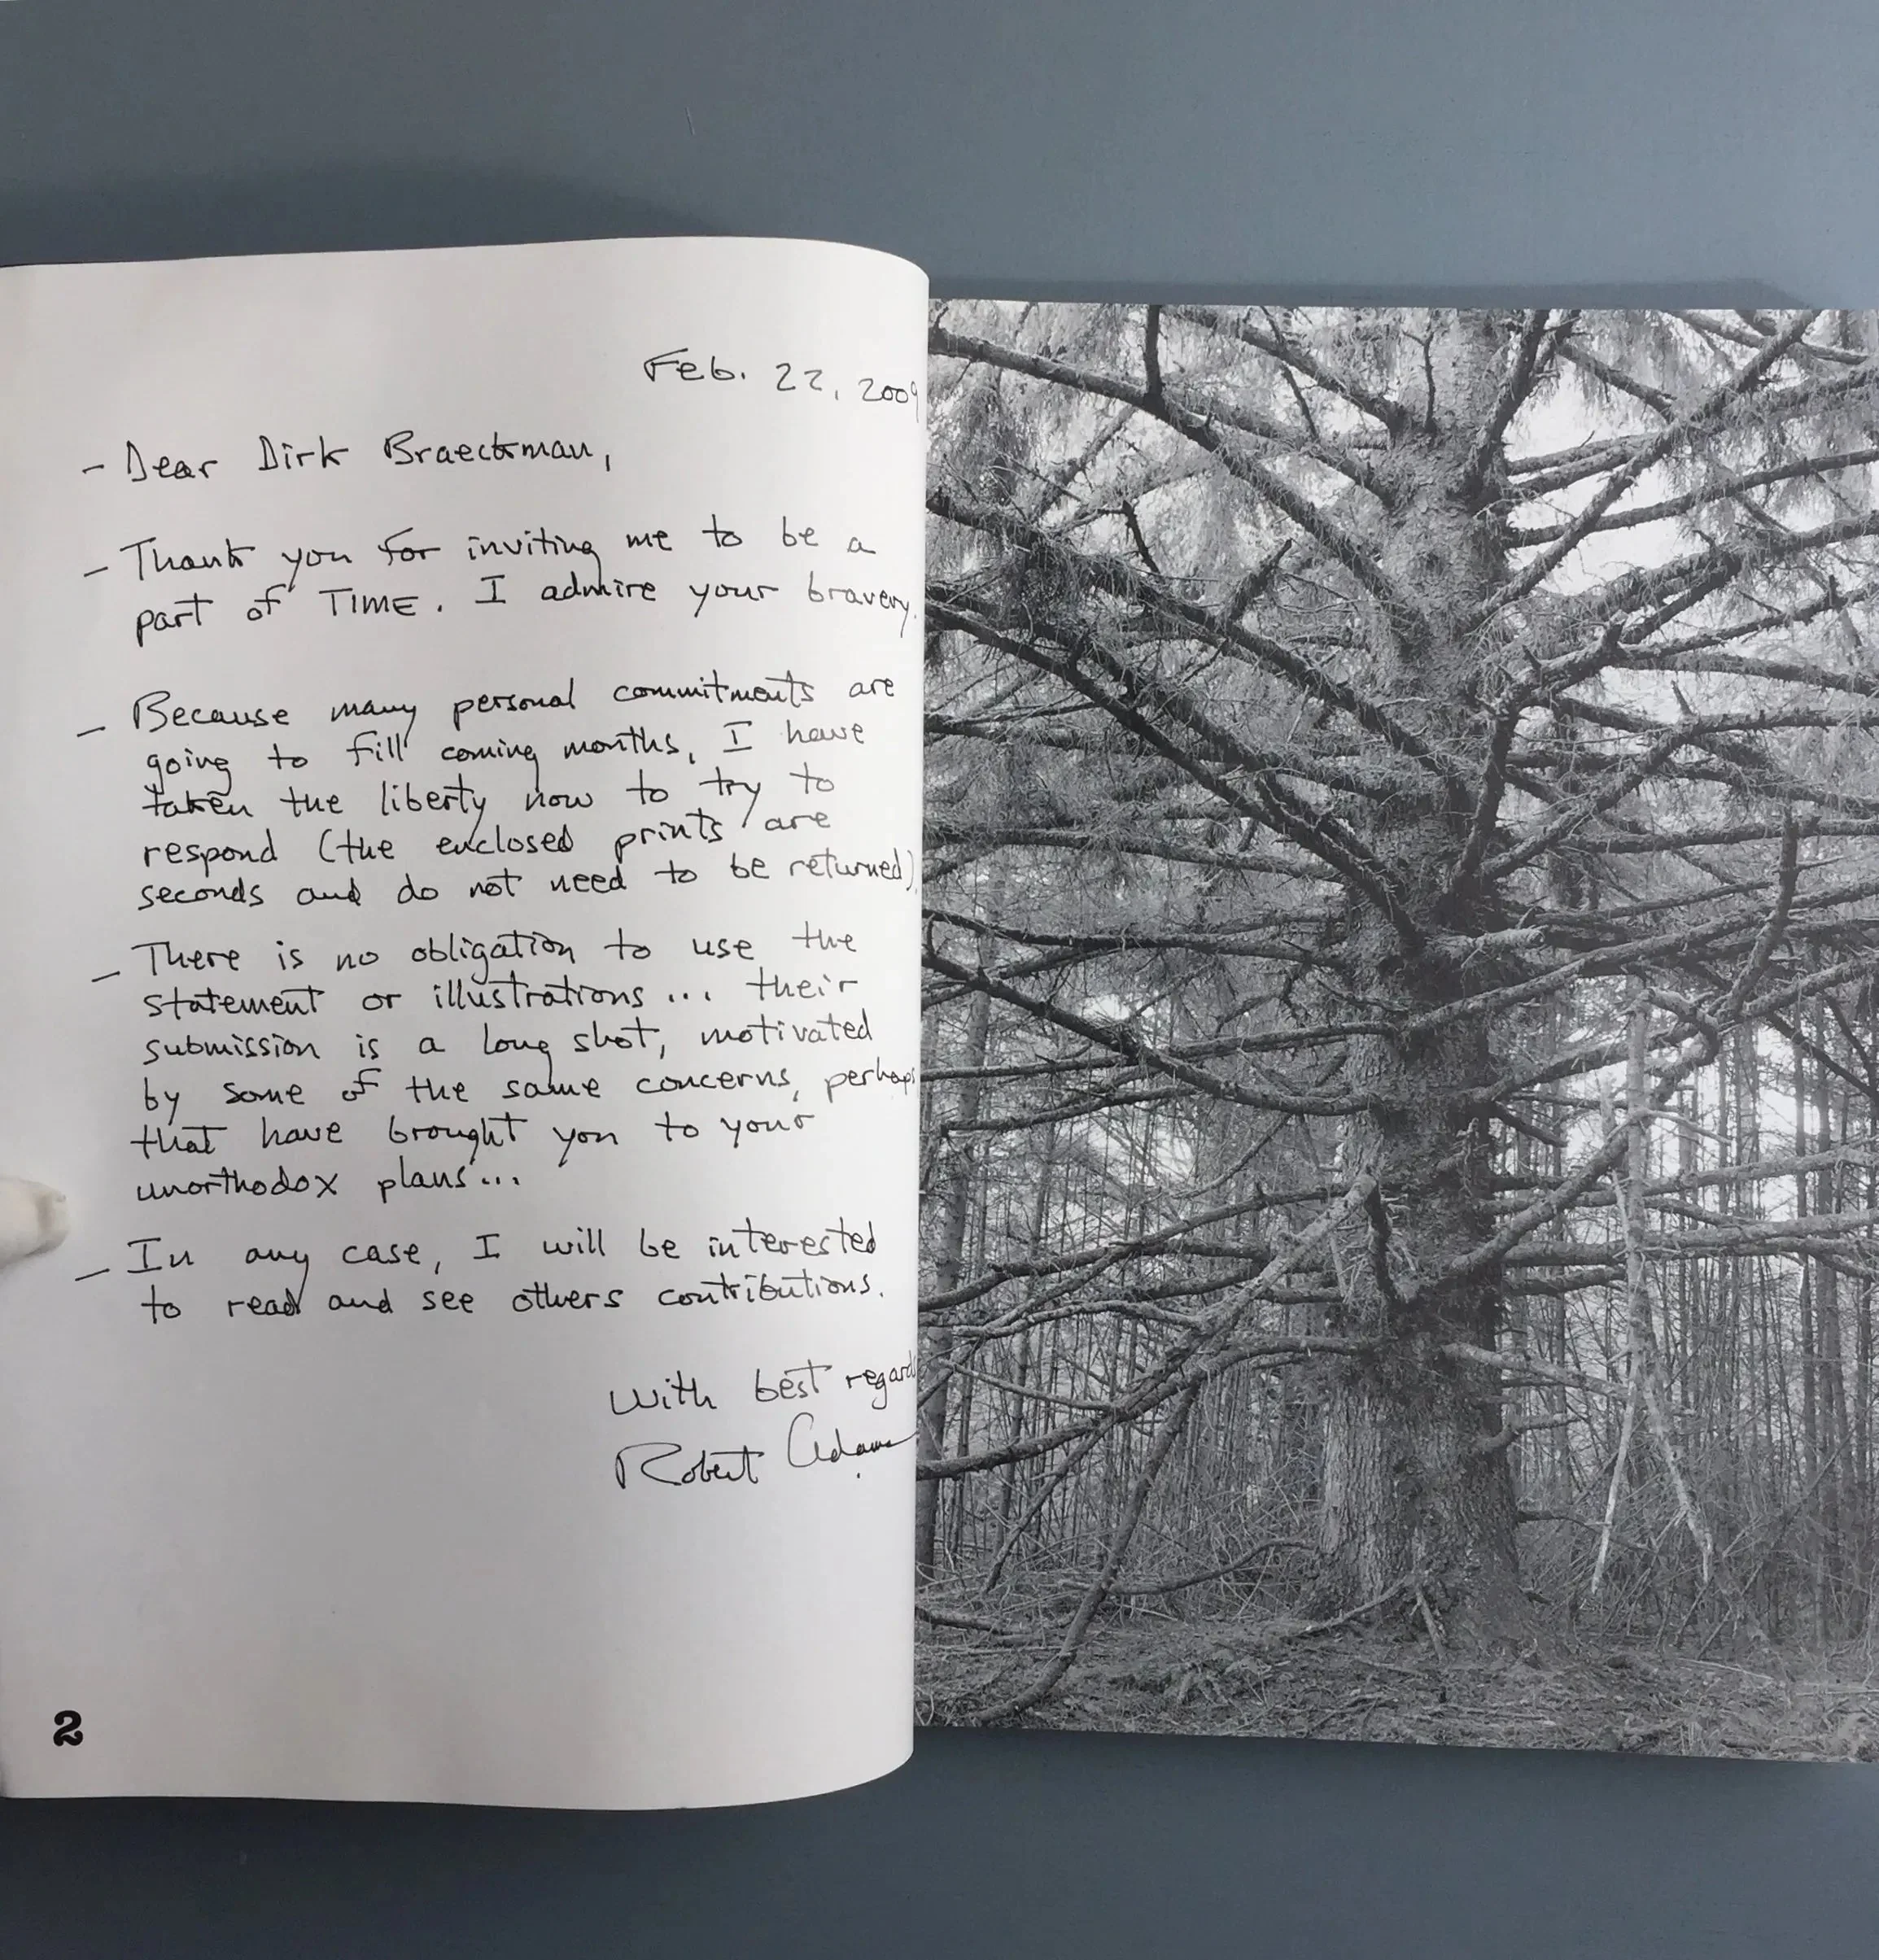 Feb. 22, 2009
- Dear Dirk Braeckman,
- Thank you for inviting me to be a
part of TIME. I admire your bravery.
- Because many personal commitments are
going to fill coming months, I have
taken the liberty now to try to
respond (the enclosed prints are
seconds and do not need to be returned).
- There is no obligation to use the
statement or illustrations... their
submission is a long shot, motivated
by some of the same concerns, perhaps
that have brought you to your
unorthodox plans...
- In any case, I will be interested
to read and see others contributions.
With best regard
Robert Adams
2